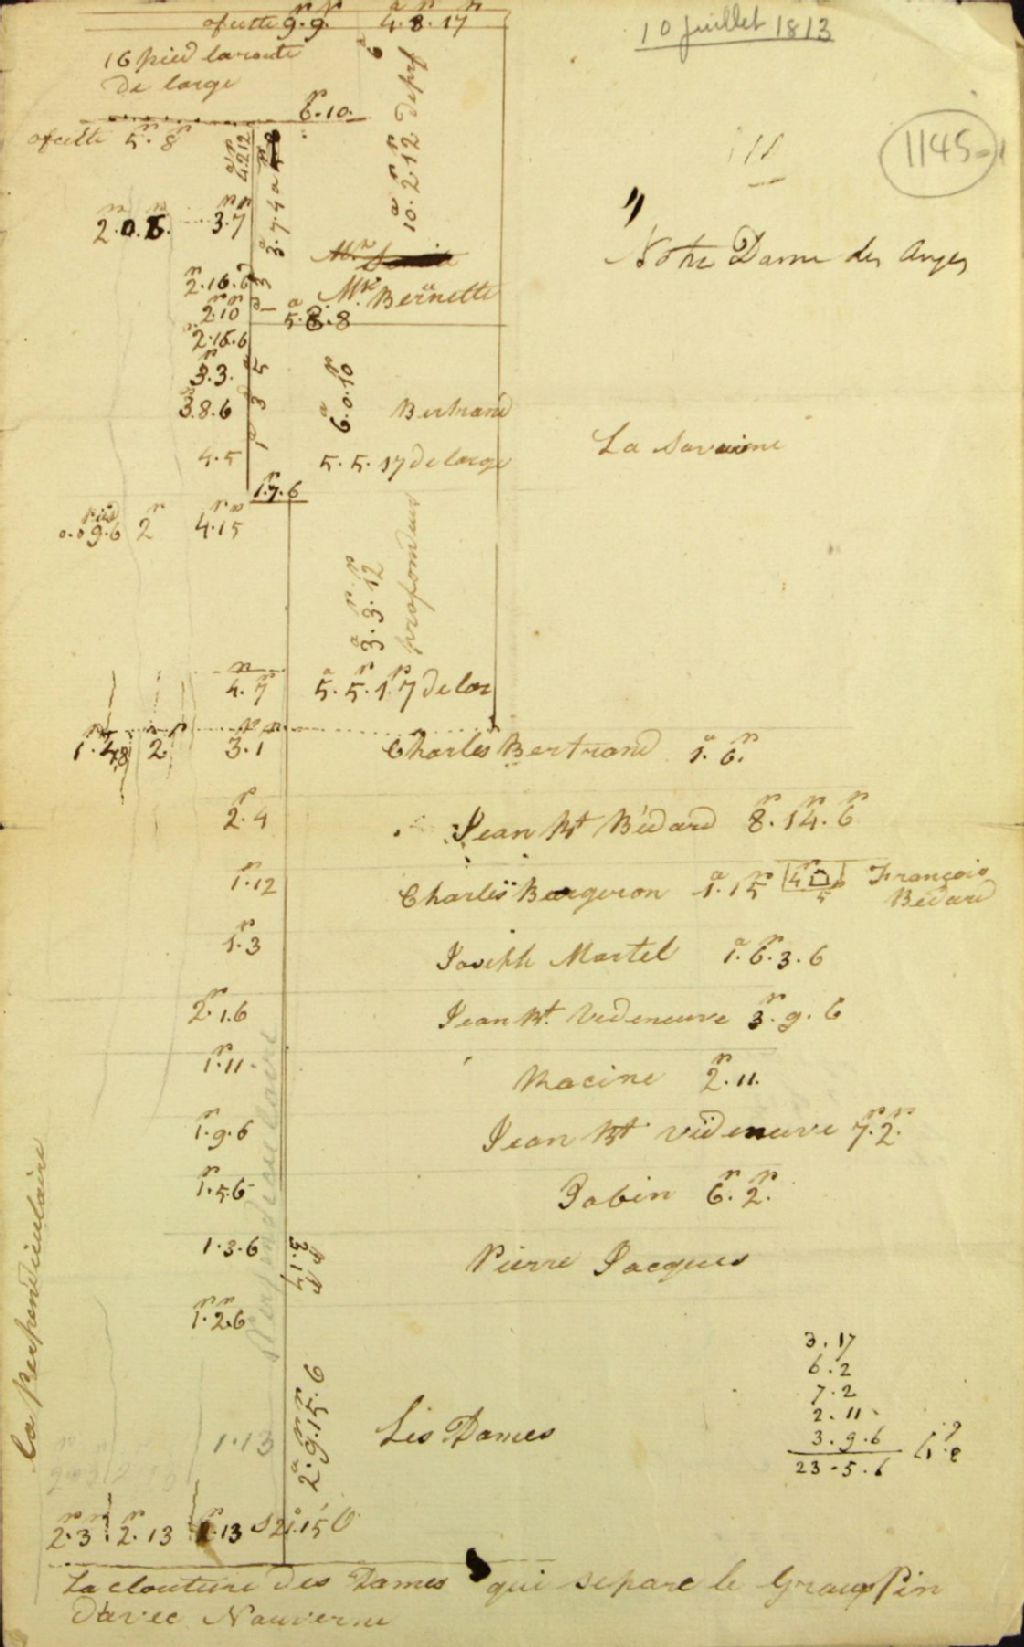 10 juillet 1813
9.9. 4.8.17
16 pied la route
de large
6.10
5.8
1145-1
4.2.12
3.7.4
10.2.12
2.0.6. 3.7
Notre Dame des Anges
2.16.6
Mr. Bernette
2.10
5.8.8
2.16.6
3.3. 5
3.8.6 3
6.0.10
Bertrand
4.5 1
5.5.17 de large
La Savanne
1.7.6
0.09.6 2 4.15
3.3.12
profondeur
4.7 5.5.17 de lar
1.48 2 3.1 Charles Bertrand 1.6.
2.4 Jean Bt Bédard 8.14.6
1.12 Charles Bergeron 1.15 4 5 François
Bédard
1.3 Joseph Martel 1.6.3.6
2.1.6 Jean Bt. Vedeneuve 3.9.6
1.11. Racine 2.11.
1.9.6 Jean Bt Videneuve 7.2.
1.5.6 Pabin 6.2.
1.3.6 Pierre Jacques
3.17
1.2.6
Perpendiculaire
la perpendiculaire
3.17
6.2
7.2
2.11.
3.9.6
23-5.6
1.13 2.9.15.6 Les Dames
2.3 2.13 1.13
La clouture des Dames qui separe le Gros Pin
d'avec Nauverne